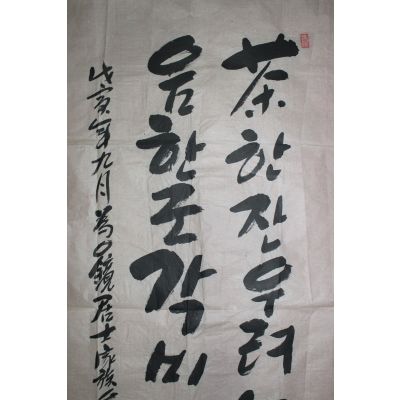 茶한잔우려
음한조각비
戊寅年九月為鏡居士